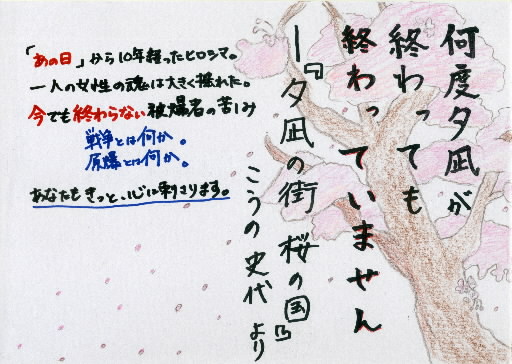 何度夕凪が
終わっても
終わっていません
―『夕凪の街 桜の国』
こうの史代 より
「あの日」から10年経ったヒロシマ。
一人の女性の魂は大きく揺れた。
今でも終わらない被爆者の苦しみ
戦争とは何か。
原爆とは何か。
あなたもきっと、心に刺さります。